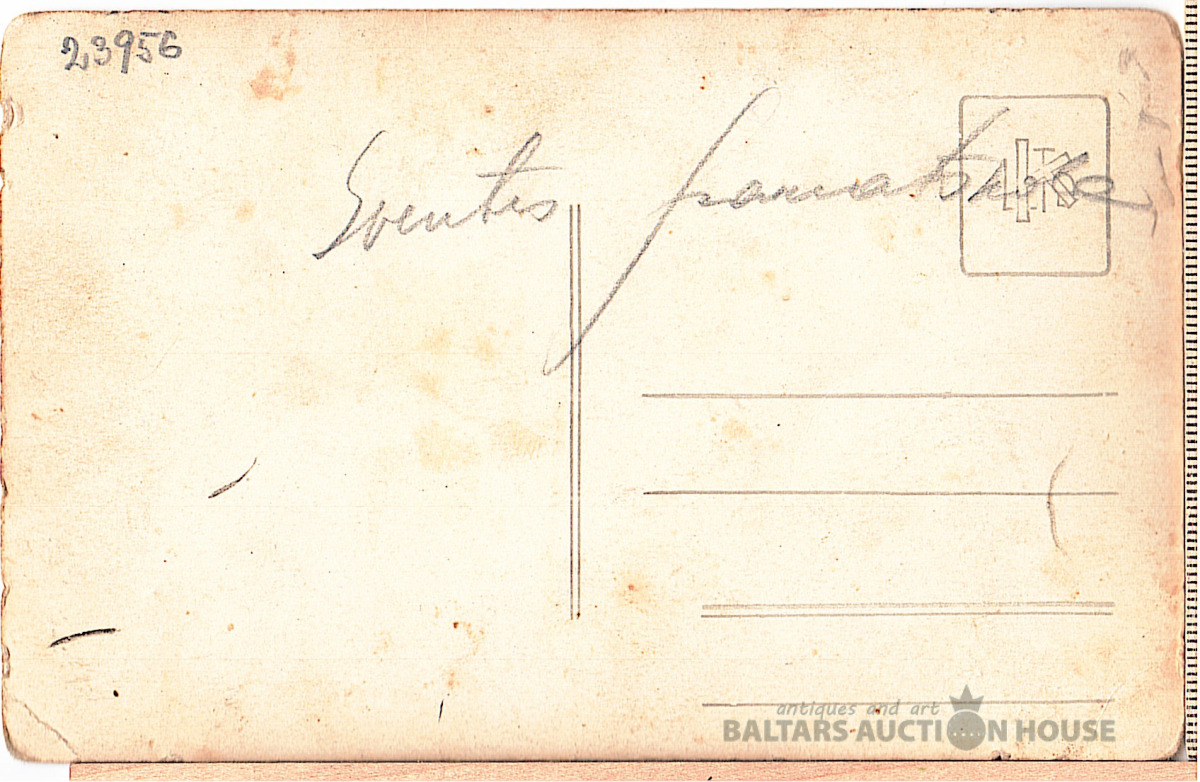 23956
Sventes pamatskola
antiques and art
BALTARS AUCTION HOUSE